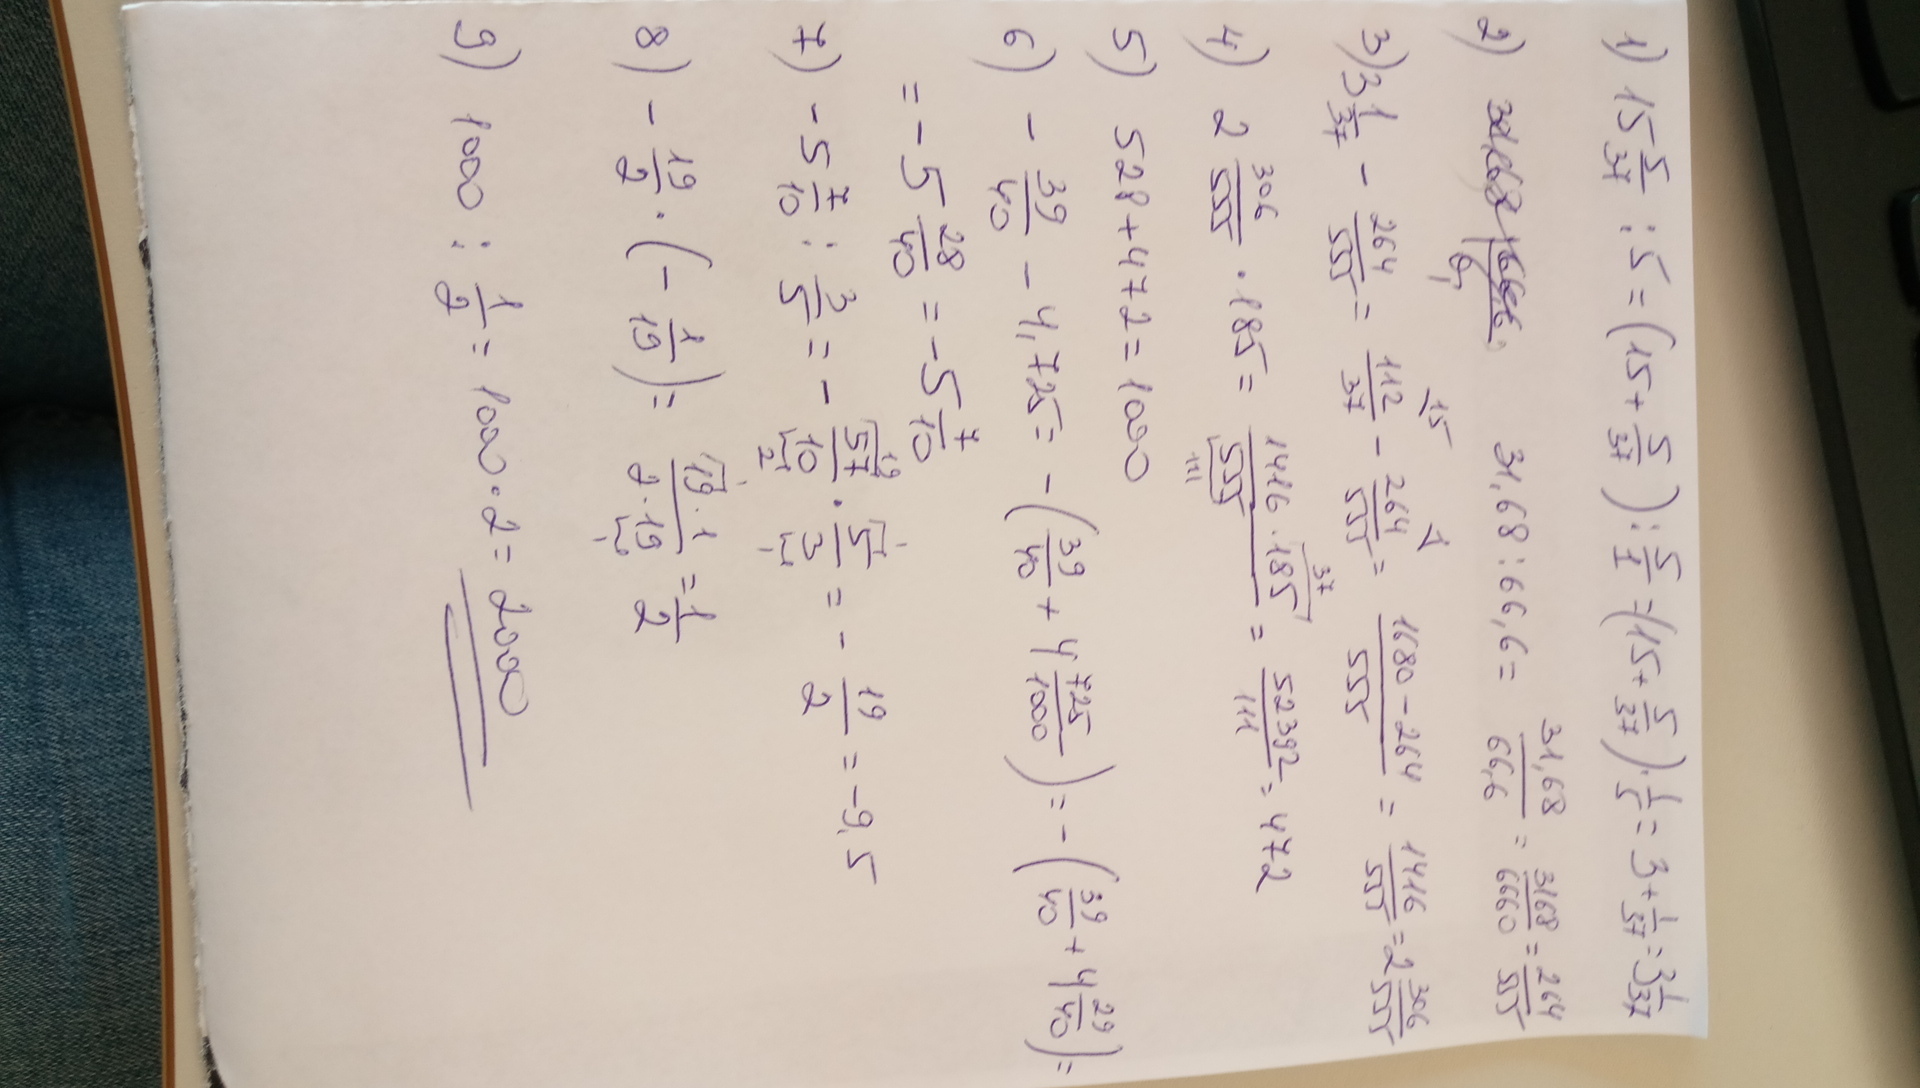 1) 15 5/37 : 5 = (15 + 5/37) : 5/1 = (15 + 5/37) · 1/5 = 3 + 1/37 = 3 1/37
2) 31,68 : 66,6 = 31,68/66,6 = 3168/6660 = 264/555
3) 3 1/37 - 264/555 = 112/37 - 264/555 = 1680-264/555 = 1416/555 = 2 306/555
4) 2 306/555 · 185 = 1416 · 185/555 = 52392/111 = 472
5) 528 + 472 = 1000
6) - 39/40 - 4,725 = - (39/40 + 4 725/1000) = - (39/40 + 4 29/40) =
= - 5 28/40 = - 5 7/10
7) - 5 7/10 : 3/5 = - 57/10 · 5/3 = - 19/2 = -9,5
8) - 19/2 · (- 1/19) = 19 · 1/2 · 19 = 1/2
9) 1000 : 1/2 = 1000 · 2 = 2000